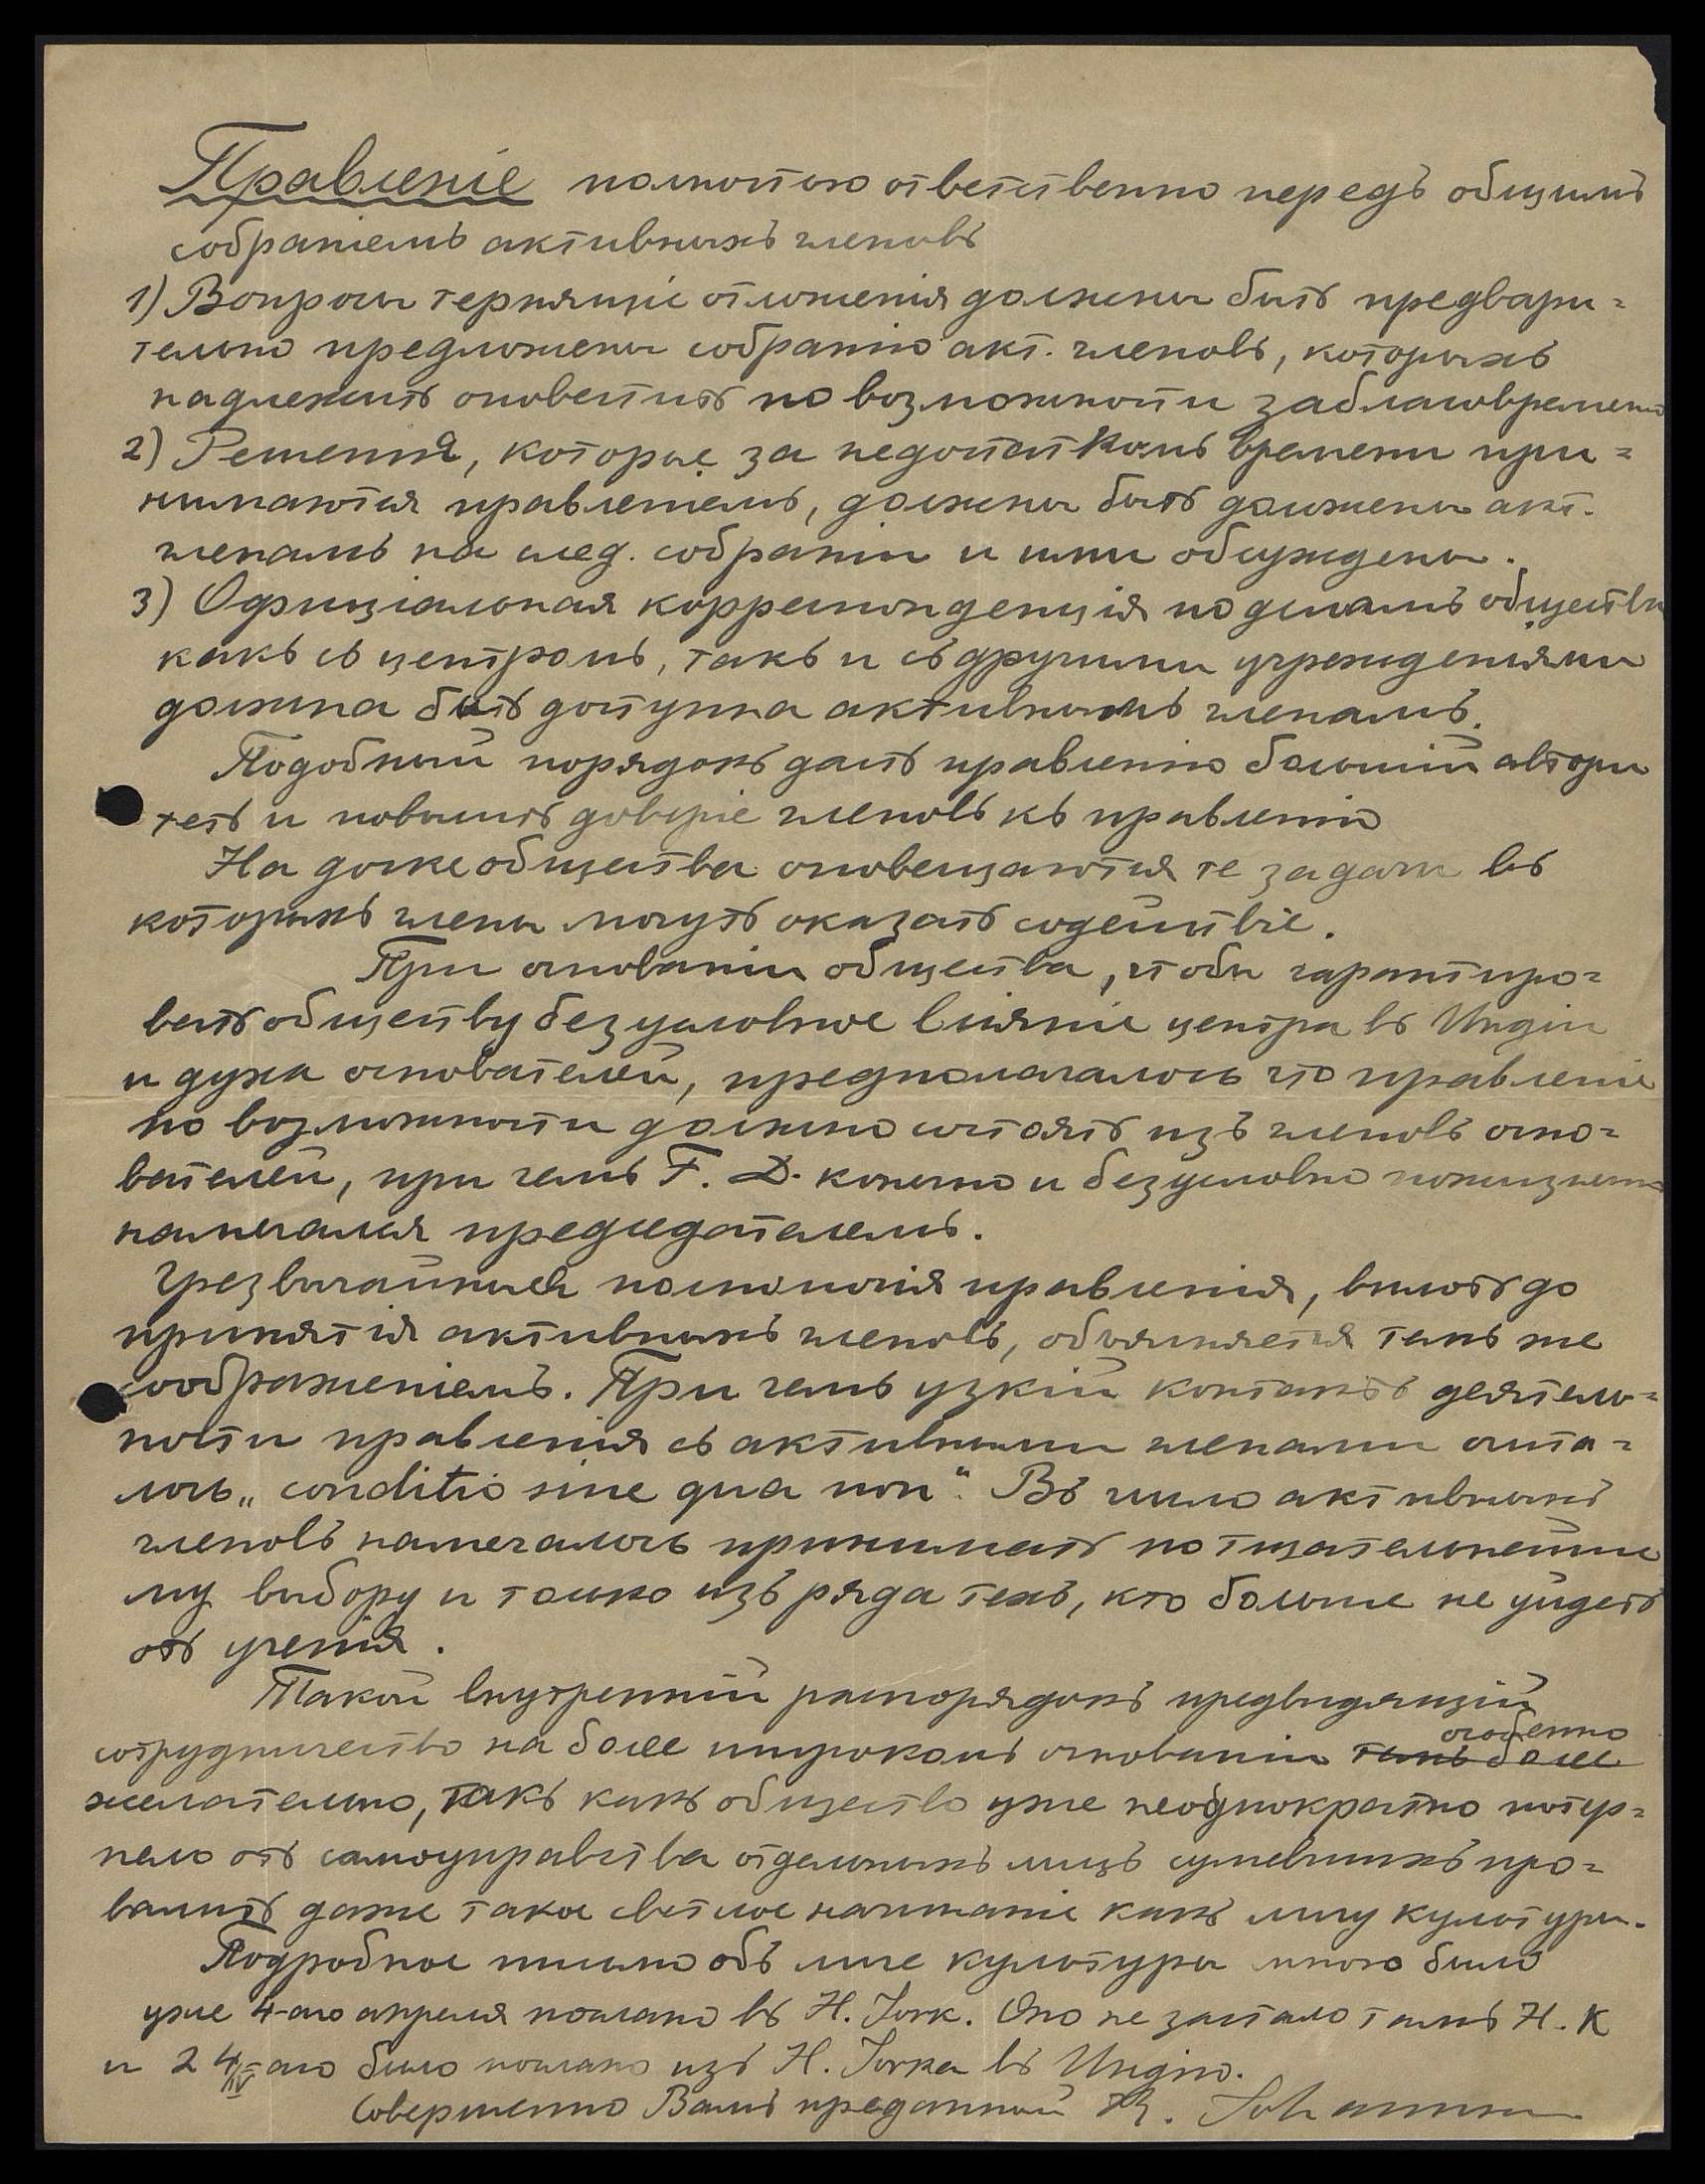 Правленіе полностью ответственно передъ общимъ
собраніемъ активныхъ членовъ
1) Вопросы терпящіе отложенія должны быть предвари=
тельно предложены собранію акт. членовъ, которыхъ
надлежитъ оповестить по возможности заблаговременно
2) Решенія, которые за недостаткомъ времени при=
нимаются правленіемъ, должны быть доложены акт.
членамъ на след. собраніи и ими обсуждены.
3) Офиціальная корреспонденція по деламъ общества
какъ съ центромъ, такъ и съ другими учрежденіями
должна быть доступна активнымъ членамъ.
Подобный порядокъ дастъ правленію большій автори
тетъ и повыситъ доверіе членовъ къ правленію
На доске общества оповещаются те задачи въ
которыхъ члены могутъ оказать содействіе.
При основаніи общества, чтобы гарантиро=
вать обществу безусловное вліяніе центра въ Индіи
и духа основателей, предполагалось что правленіе
по возможности должно состоять изъ членовъ осно=
вателей, при чемъ Ф. Д. конечно и безусловно пожизненно
намечался председателемъ.
Чрезвычайныя полномочія правленія, вплоть до
принятія активныхъ членовъ, объясняется темъ же
соображеніемъ. При чемъ узкій контактъ деятель=
ности правленія съ активными членами счита=
лось „conditio sine qua non“. Въ число активныхъ
членовъ намечалось принимать по тщательнейше
му выбору и только изъ ряда техъ, кто больше не уйдетъ
отъ ученія.
Такой внутренній распорядокъ предвидящій
сотрудничество на более широкомъ основаніи темъ более особенно
желательно, такъ какъ общество уже неоднократно потер=
пело отъ самоуправства отдельныхъ лицъ сумевшихъ про=
валить даже такое светлое начинаніе какъ лигу культуры.
Подробное письмо объ лиге культуры мною было
уже 4-аго апреля послано въ Н. Іорк. Оно не застало тамъ Н. К
и 24/IV-аго было послано изъ Н. Іорка въ Индію.
Совершенно Вамъ преданный